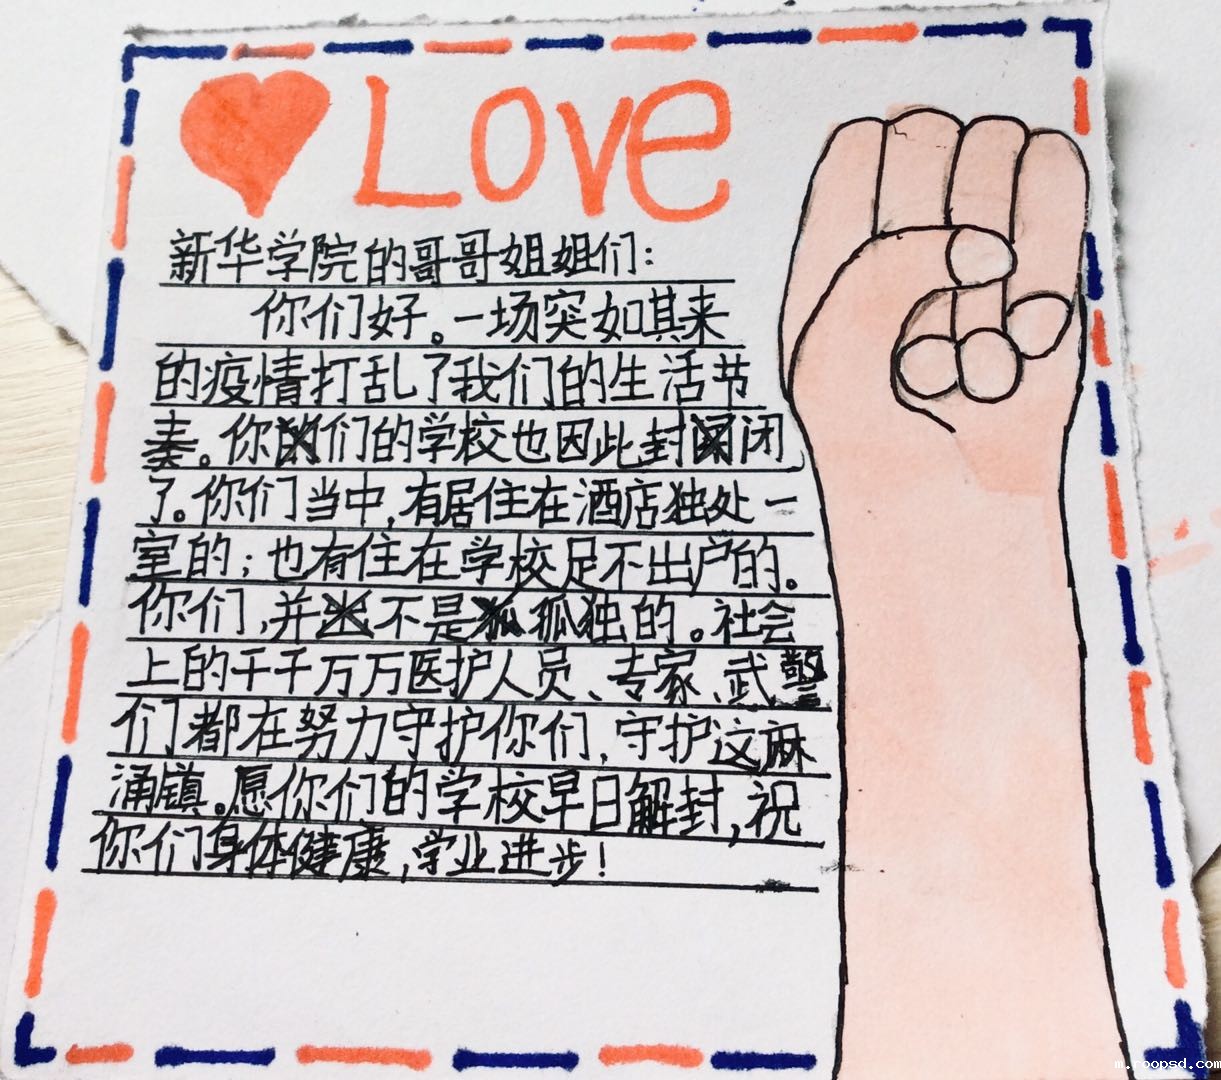 Love
新华学院的哥哥姐姐们：
你们好。一场突如其来
的疫情打乱了我们的生活节
奏。你们的学校也因此封闭
了。你们当中,有居住在酒店独处一
室的；也有住在学校足不出户的。
你们,并不是孤独的。社会
上的千千万万医护人员、专家、武警
们都在努力守护你们,守护这麻
涌镇。愿你们的学校早日解封,祝
你们身体健康,学业进步！
m.roopsd.com